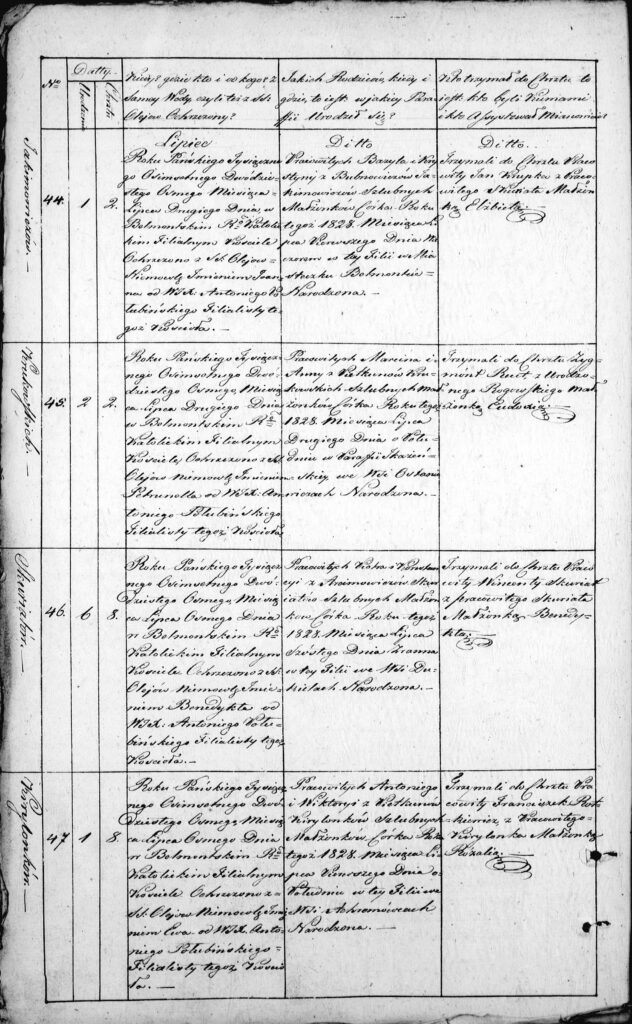 No
Datty.
Urodzenia
Chrztu
Kiedy? gdzie kto i od kogo? z
Samey Wody czyli też z SS.
Olejow Ochrzczony?
Jakich Rodzicow, kiedy i
gdzie, to iest w jakiey Para-
ffii Urodził się?
Kto trzymał do Chrztu to
iest kto byli Kumami
i kto Assystował
Lipiec
Ditto
Ditto
44.
1
2.
Roku Pańskiego Tysiączne
go Osimsetnego Dwudzie-
stego Osmego Miesiąca
Lipca Drugiego Dnia, w
Bolmontskim Ro Katolic-
kim Filialnym Kościele
Ochrzczono z SS. Olejow
Niemowlę Imieniem Joan-
na od WJX. Antoniego Po-
łubińskiego Filialisty te-
goż Kościoła. —
Pracowitych Bazyla i Kry-
styny z Bubnowiczow Ja-
kimowiczow Szlubnych
Małżonkow Córka Roku
tegoż 1828. Miesiąca Li-
pca Pierwszego Dnia Wie-
czorem w tey Filii w Mia-
steczku Bolmontcie
Narodzona. —
Trzymali do Chrztu Praco-
wity Jan Krupka z Praco-
witego Skuriata Małżon-
ką Elżbietą.
45.
2
2.
Roku Pańskiego Tysiącz-
nego Osimsetnego Dwu-
dziestego Osmego, Miesią-
ca Lipca Drugiego Dnia
w Bolmontskim Ro
Katolickim Filialnym
Kościele Ochrzczono z SS.
Olejow Niemowlę Imieniem
Petrunella od WJX. An-
toniego Połubińskiego
Filialisty tegoż Kościoła
Pracowitych Marcina i
Anny z Pietkunow
Szlubnych Mał-
żonkow Córka Roku tegoż
1828. Miesiąca Lipca
Drugiego Dnia o Połu-
dniu w Paraffii
skiey we Wsi
Narodzona. —
Trzymali do Chrztu Zyg-
mont Ruct z Urodzo-
nego Rogowskiego Mał-
żonką Eudoxią.
46.
6
8.
Roku Pańskiego Tysiącz-
nego Osimsetnego Dwu-
dziestego Osmego, Miesią-
ca Lipca Osmego Dnia
w Bolmontskim Ro
Katolickim Filialnym
Kościele Ochrzczono z SS.
Olejow Niemowlę Imie-
niem Benedykta od
WJX. Antoniego Połu-
bińskiego Filialisty tegoż
Kościoła. —
Pracowitych
z Skur-
iatow Szlubnych Małżon-
kow Córka Roku tegoż
1828. Miesiąca Lipca
Szóstego Dnia Zrana
w tey Filii we Wsi Du-
kielach Narodzona. —
Trzymali do Chrztu Praco-
wity Wincenty Skuriat
z pracowitego Skuriata
Małżonką Benedy-
ktą.
47
1
8.
Roku Pańskiego Tysiącz-
nego Osimsetnego Dwu-
dziestego Osmego, Miesią-
ca Lipca Osmego Dnia
w Bolmontskim Ro
Katolickim Filialnym
Kościele Ochrzczono z
SS. Olejow Niemowlę Imie-
niem Ewa od WJX. Anto-
niego Połubińskiego
Filialisty tegoż Kościo-
ła. —
Pracowitych Antoniego
i Wiktoryi z Pietkunow
Kurylonkow Szlubnych
Małżonkow Córka Roku
tegoż 1828. Miesiąca Li-
pca Pierwszego Dnia o
Południu w tey Filii we
Wsi Achromowcach
Narodzona. —
Trzymali do Chrztu Pra-
cowity Franciszek
z Pracowitego
Kurylonka Małżonką
Rozalią.
Jakimowiczów. —
Skuriatów. —
Kurylonków. —